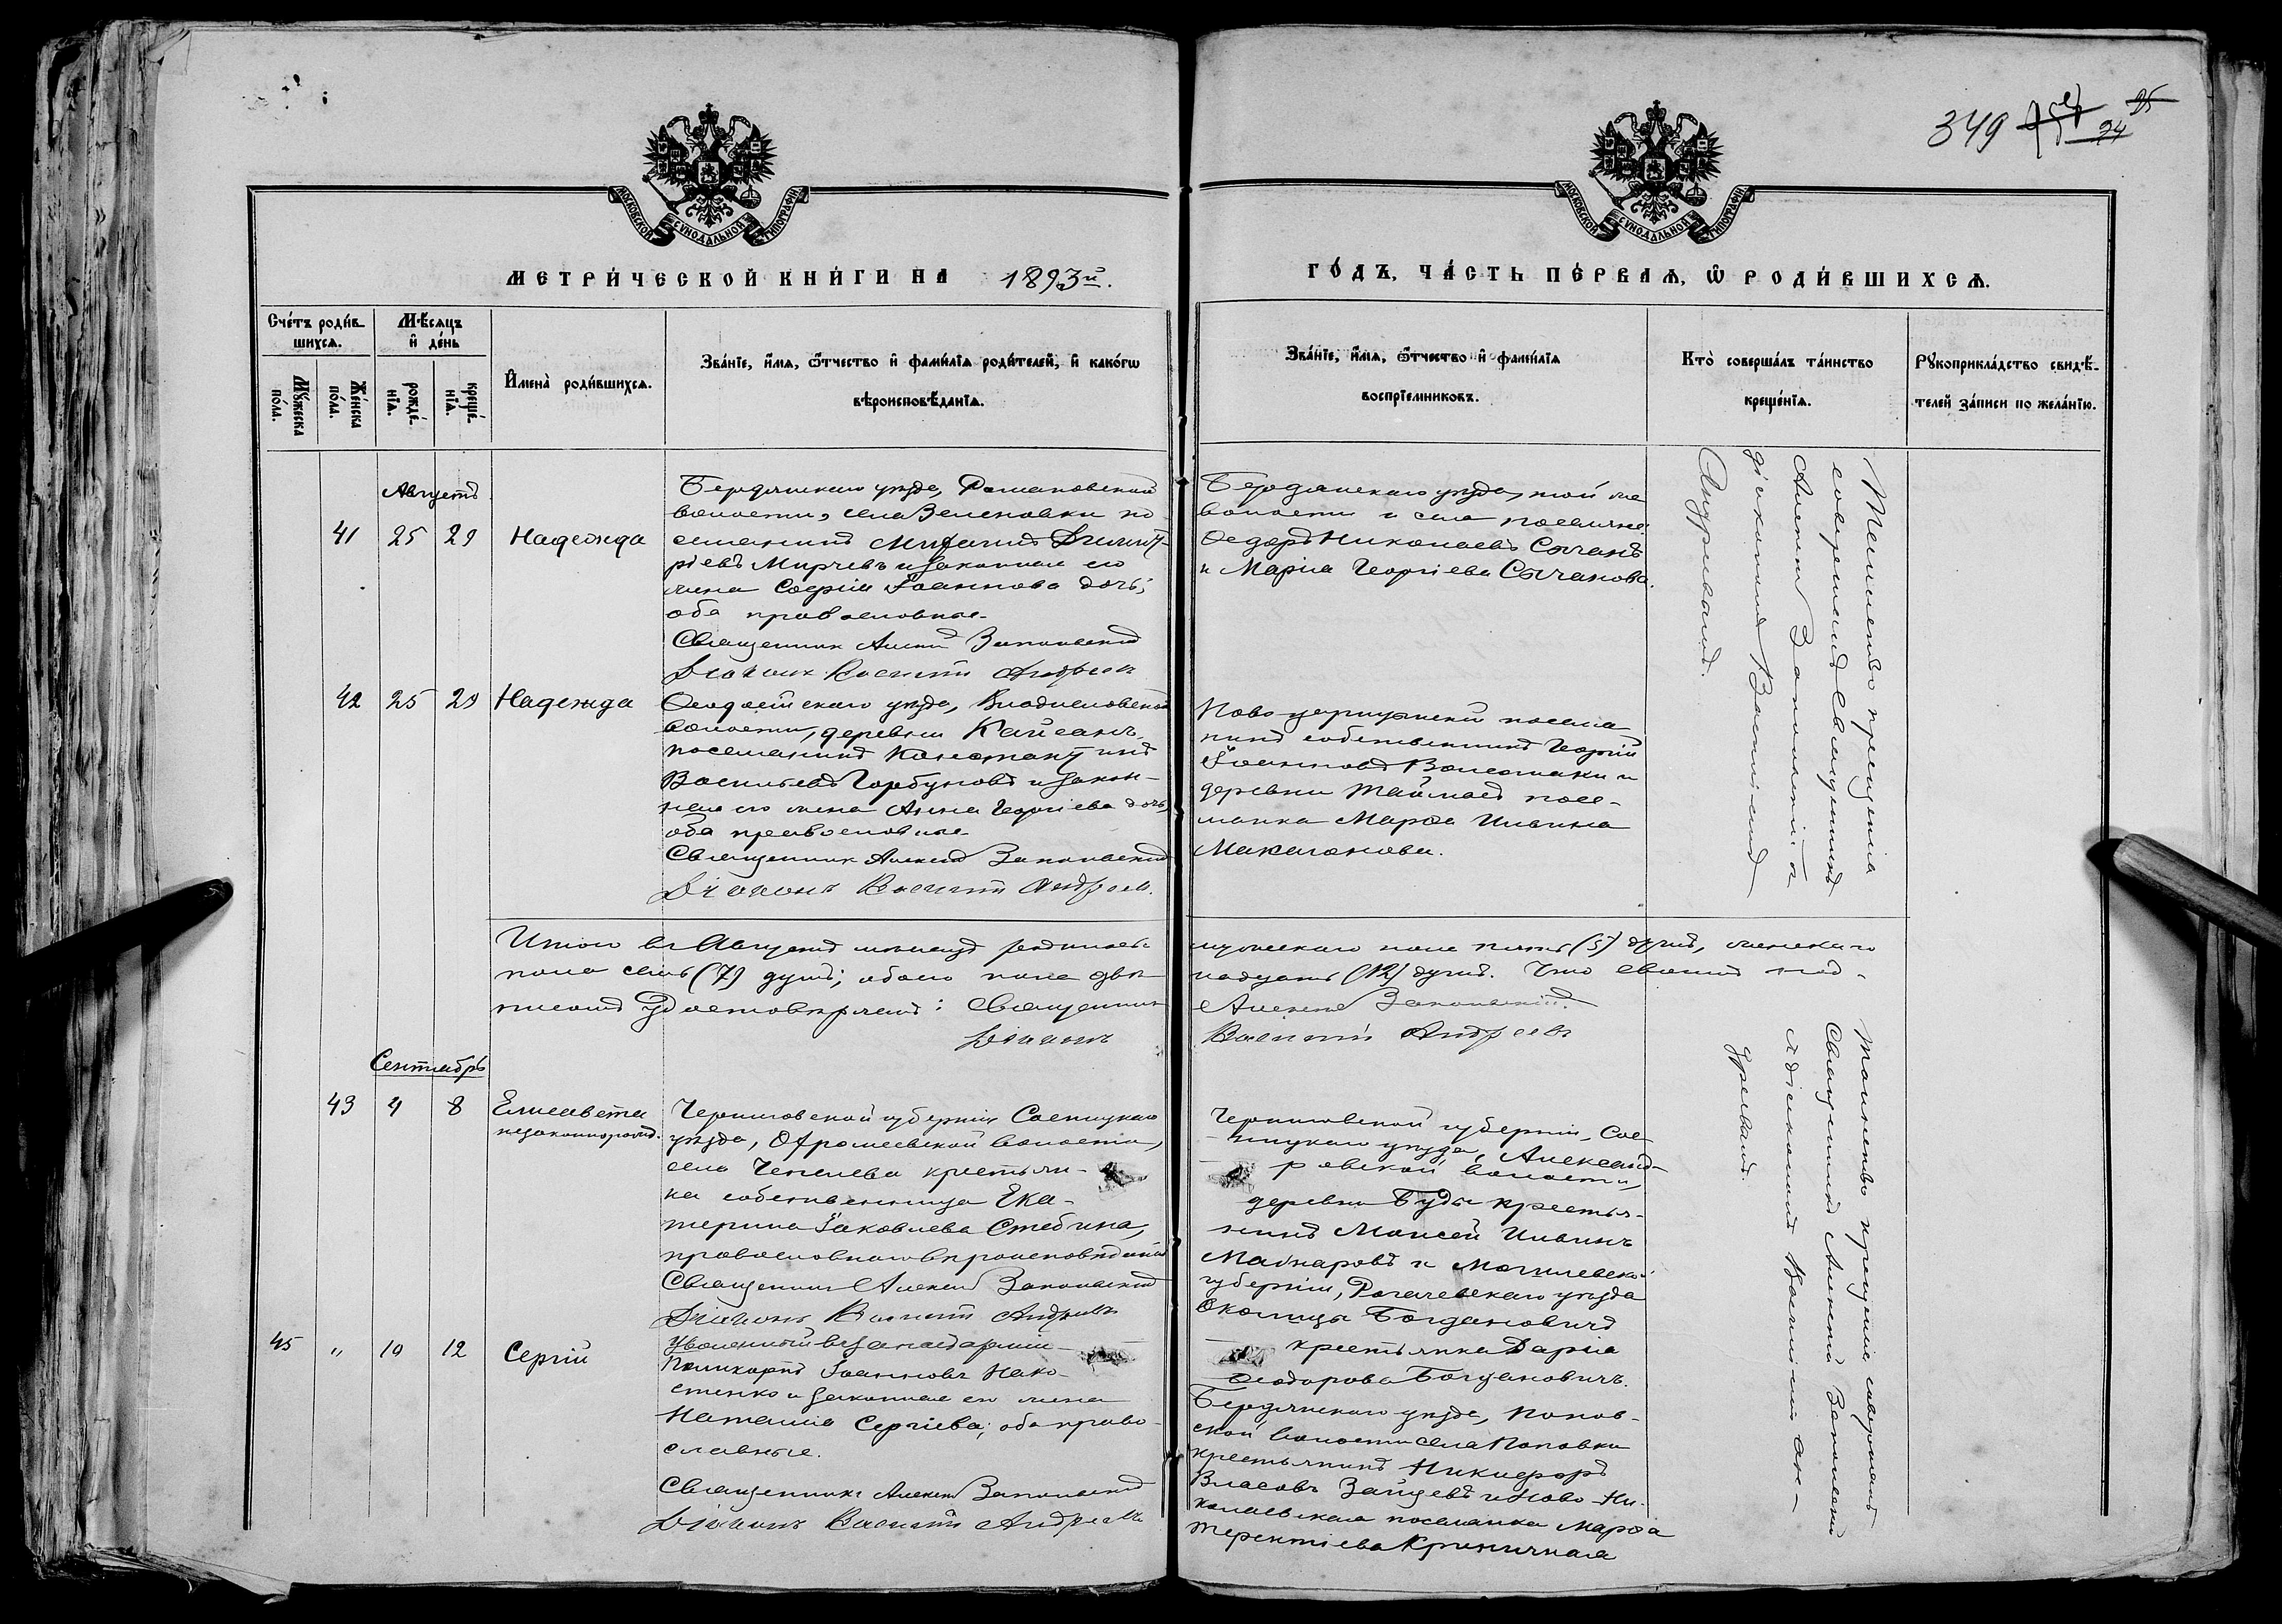 349 24 25
МОСКОВСКОЙ СѴНОДАЛЬНОЙ ТИПОГРАФІИ
МОСКОВСКОЙ СѴНОДАЛЬНОЙ ТИПОГРАФІИ
МЕТРИ́ЧЕСКОЙ КНИ́ГИ НА 1893й.
ГО́ДЪ, ЧА́СТЬ ПЕ́РВАѦ, Ѽ РОДИ́ВШИХСѦ.
Сче́тъ роди́в-
шихсѧ.
Мꙋжеска по́ла.
Же́нска по́ла.
Мѣ́сѧцъ
и҆ де́нь
рожде́-
нїѧ.
креще́-
нїѧ.
И҆мена̀ роди́вшихсѧ.
Зва́нїе, и҆́мѧ, ѻ҆́тчество и҆ фами́лїѧ роди́телей, и҆ како́гѡ
вѣроисповѣ́данїѧ.
Зва́нїе, и҆́мѧ, ѻ҆́тчество и҆ фами́лїѧ
воспрїемниковъ.
Кто̀ соверша́лъ та́инство
креще́нїѧ.
Рꙋкоприкла́дство свидѣ́-
телей за́писи по жела́нїю.
Августъ
41 25 29 Надежда
Бердянскаго уѣзда, Романовской
волости, села Зеленовки по
селянинъ Михаилъ Димит-
ріевъ Мирчевъ и законная его
жена Софія Іоаннова дочь;
оба православные.
Священник Алексій Запольскій
Діаконъ Василій Андреевъ
Бердянскаго уѣзда, той же
волости и села поселяне
Ѳеодоръ Николаевъ Сычанъ
и Марія Георгіева Сычанова.
Таинство крещенія
совершилъ Священникъ
Алексій Запольскій съ
діакономъ Василіемъ
Андреевымъ.
42 25 29 Надежда
Ѳеодосійскаго уѣзда, Владиславской
волости, деревни Кайсанъ,
поселянинъ Константинъ
Васильевъ Горбуновъ и закон-
ная его жена Анна Георгіева дочь,
оба православные
Священник Алексій Запольскій
Діаконъ Василій Андреевъ.
поселя
нинъ собственникъ Георгій
Іоанновъ и
деревни посе-
лянка Марѳа Ильина
Итого въ Августѣ мѣсяцѣ родилось мужескаго пола пять (5) душъ, женскаго
пола семь (7) душъ; обоего пола двѣ надцать (12) душъ. Что своимъ под-
писомъ удостовѣряемъ: Священникъ Алексій Запольскій.
Діаконъ Василій Андреевъ
Сентябрь
43 4 8 Елисавета
незаконнорожд.
Черниговской губерніи Сосницкаго
уѣзда, волости,
села крестьян-
ка собственница Ека-
терина Іаковлева Стебина,
православнаго вѣроисповѣданія
Священник Алексій Запольскій
Діаконъ Василій Андреевъ
Черниговской губерніи, Сос-
ницкаго уѣзда, Александ-
ровской волости,
деревни Буды крестья-
нинъ Моисей Ильинъ
и Могилевской
губерніи, Рогачевскаго уѣзда
Околицы Богдановичъ
крестьянка Дарія
Ѳеодорова Богдановичъ.
Таинство крещенія совершилъ
Священникъ Алексій Запольскій
съ діакономъ Василіемъ Ан-
дреевымъ.
45 " 10 12 Сергій
Уволенный въ запасъ арміи
Поликарпъ Іоанновъ Нако-
стенко и законная его жена
Наталія Сергіева; оба право-
славные.
Священникъ Алексій Запольскій
Діаконъ Василій Андреевъ
Бердянскаго уѣзда, Попов-
ской волости села Поповки
крестьянинъ Никифоръ
Власовъ Зайцевъ и Ново-Ни-
колаевская поселянка Марѳа
Терентіева Криничная